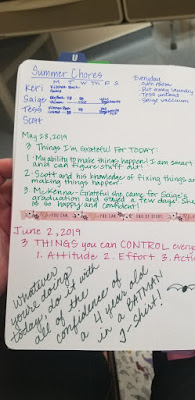 Summer Chores
M T W Th F S
Keri
Saige
Tess
Scott
Everyday
own room
Put away laundry
Tess
Saige vaccum
May 28, 2019
3 Things I'm Grateful For TODAY:
1- My ability to make things happen! I am smart
and can figure stuff out!
2- Scott and his knowledge of fixing things and
making things happen.
3- McKenna- Grateful she came for Saige's
graduation and stayed a few days! She
is so happy and confident!
YOU CAN END OF STORY YOU CAN
June 2, 2019
3 THINGS you can CONTROL every
1. Attitude 2. Effort 3. Acti
Whatever
you're doing
today, do it with
all of the
confidence of
a 4 year old
in a BATMAN
T-Shirt!